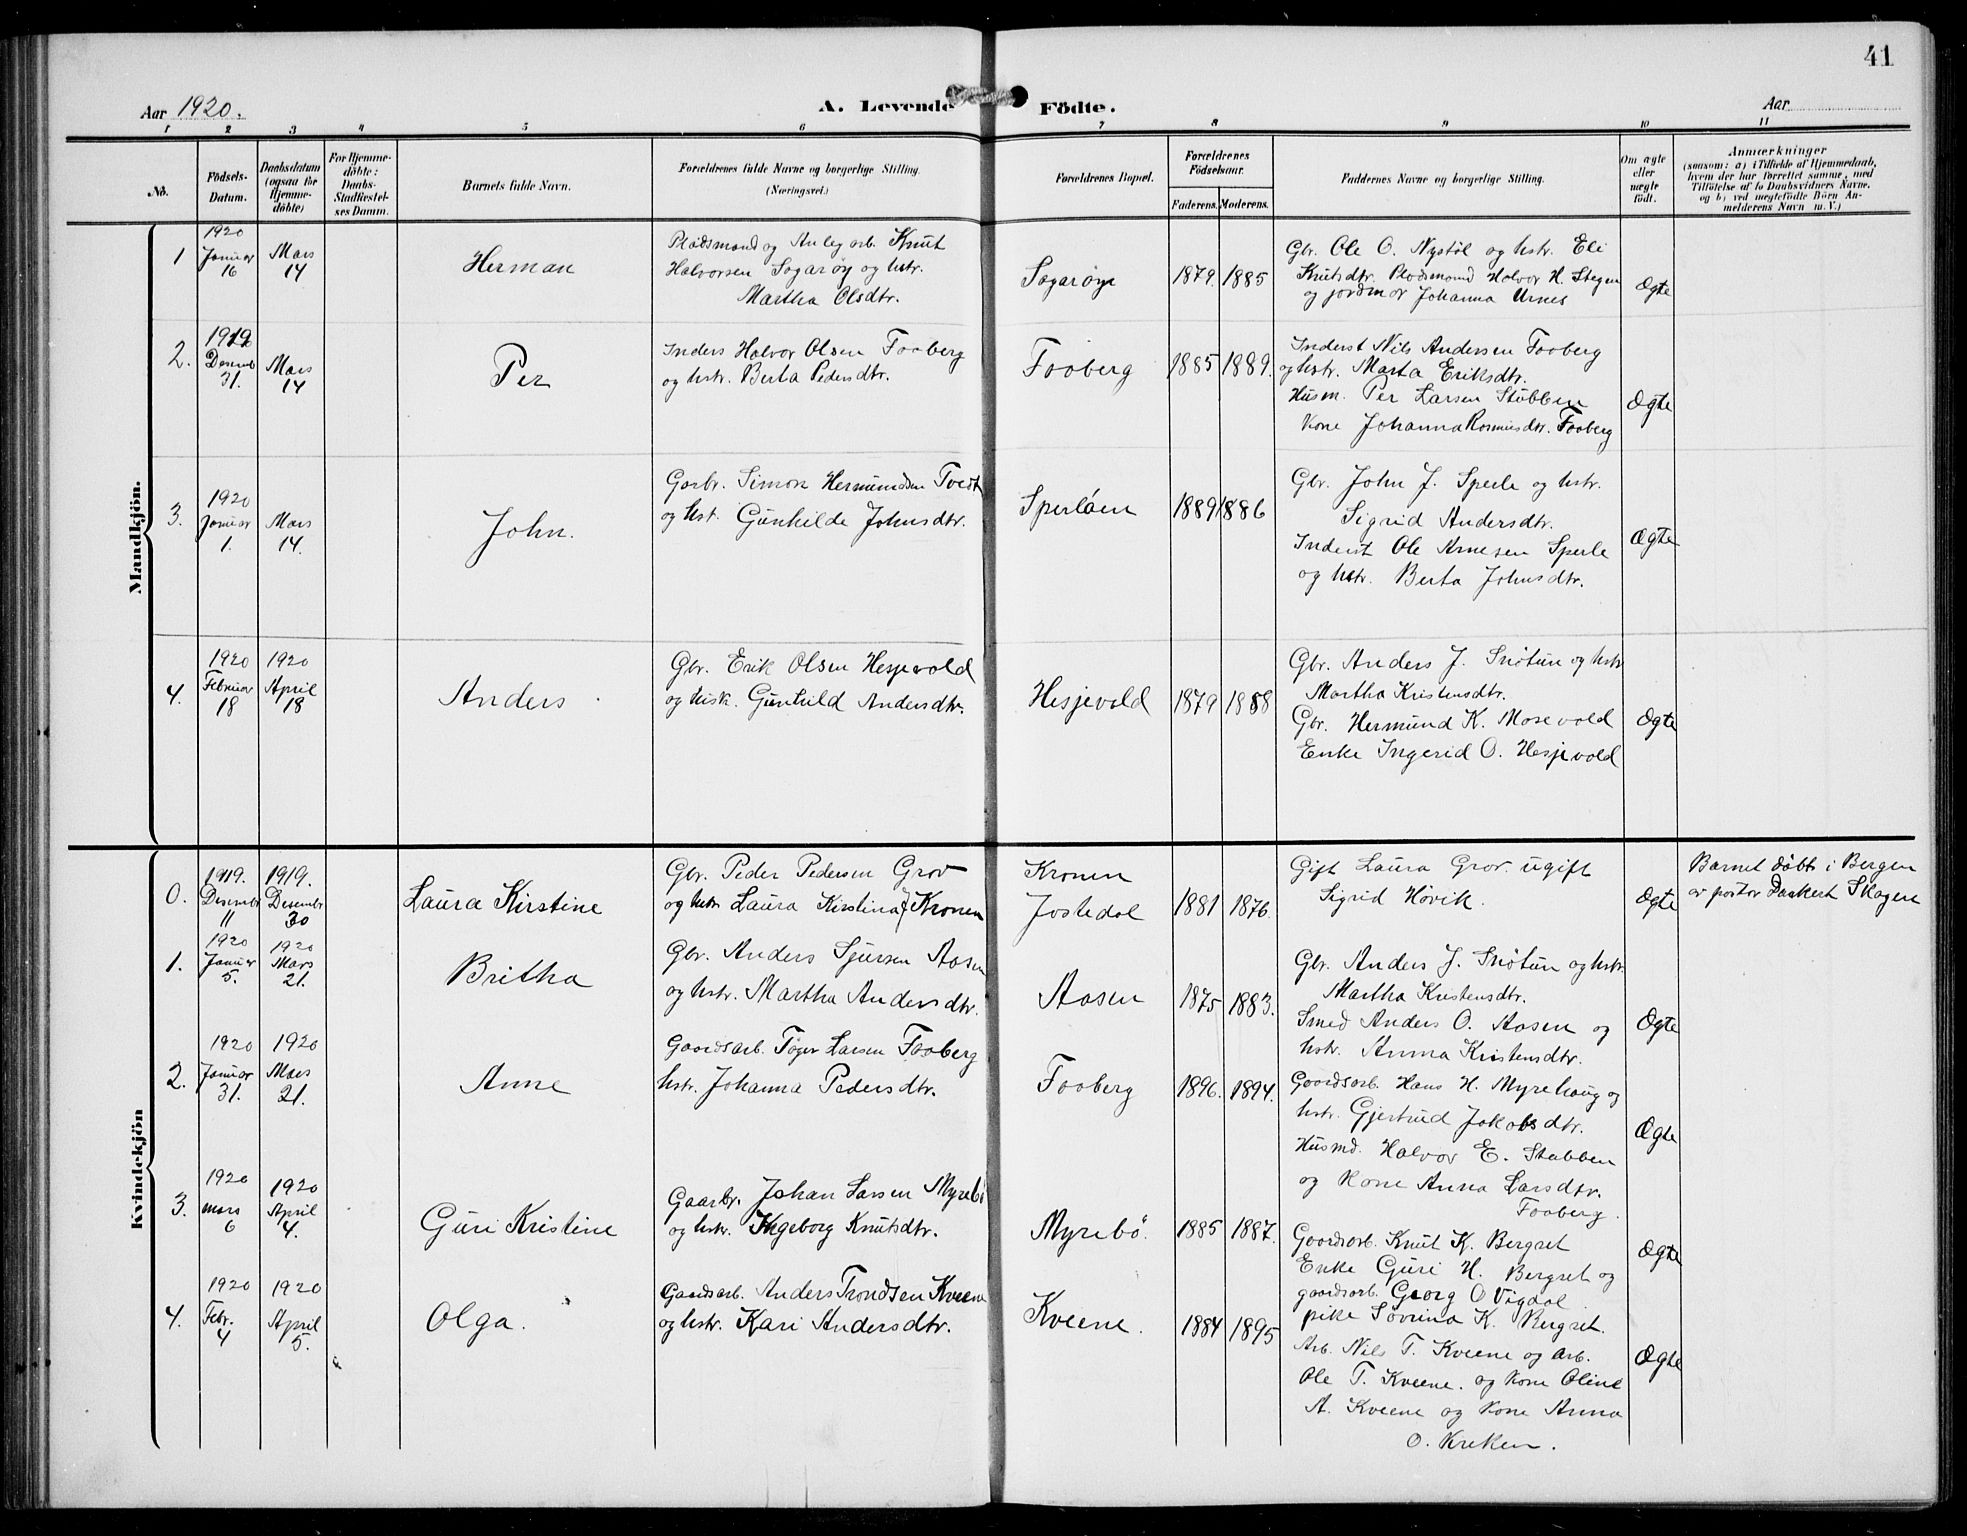 41
Aar 1920.
A. Levende Födte.
Aar
1 2 3 4 5 6 7 8 9 10 11
No.
Födsels-Datum.
Daabsdatum (ogsaa for Hjemme-döbte)
For Hjemme-döbte: Daabs-Stadfæstel-ses Datum.
Barnets fulde Navn.
Forældrenes fulde Navne og borgerlige Stilling. (Næringsvei.)
Forældrenes Bopæl.
Forældrenes Födselsaar.
Faderens. Moderens.
Faddernes Navne og borgerlige Stilling.
Om ægte eller uægte födt.
Anmærkninger
(saasom: a) i Tilfælde af Hjemmedaab,
hvem der har forrettet samme, med
Tilföielse af to Daabsvidners Navne.
og b) ved uægtefödte Börn An-
melderens Navn m. V.)
Mandkjön.
1
1920 Januar 16
Mars 14
Herman
Pladsmand og Anleg arb. Knut
Halvorsen Sogarøy og hstr.
Martha Olsdtr.
Sogarøy
1879. 1885
Gbr. Ole O. Nystöl og hstr. Eli
Knutsdtr. Pladsmand Halvor H. Stegen
og jordmor Johanna Urnes
Ægte
2.
1919 Desemb 31.
Mars 14
Per
Inders Halvor Olsen Faaberg
og hstr. Berta Pedersdtr.
Faaberg
1885 1889.
Inderst Nils Andersen Faaberg
og hstr. Marta Eriksdtr.
Husm. Per Larsen Stubben
Kone Johanna Rasmusdtr. Faaberg
Ægte
3.
1920 Januar 1.
Mars 14.
John.
Garbr. Simon Hermundsen Tvedt
og hst. Gunhilde Johnsdtr.
Sperlöen
1889 1886
Gbr. John J. Sperle og hstr.
Sigrid Andersdtr.
Inderst Ole Arnesen Sperle
og hstr. Berta Johnsdtr.
Ægte
4.
1920 Februar 18
1920 April 18
Anders
Gbr. Erik Olsen Hesjevold
og husk. Gunhild Andersdtr.
Hesjevold
1879 1888
Gbr. Anders J. Snötun og hstr
Martha Kristensdtr.
Gbr. Hermund K. Mosevold
Enke Ingerid O. Hesjevold
Ægte
Kvindekjön
0.
1919. Desembr 11
1919. Desembr 30
Laura Kirstine
Gbr. Peder Pedersen Grov
og hstr Laura Kirstina J Kronen
Kronen
Jostedal
1881 1876.
Gift Laura Grov. ugift
Sigrid Hövik.
Ægte
Barnet döbt i Bergen
av pastor Dankert Skagen
1.
1920 Januar 5.
1920 Mars 21.
Britha
Gbr. Anders Sjursen Aasen
og hstr. Martha Andersdtr.
Aasen
1875 1883.
Gbr. Anders J. Snötun og hstr.
Martha Kristensdtr.
Smed Anders O. Aasen og
hstr. Anna Kristensdtr.
Ægte
2.
1920 Januar 31.
1920 Mars 21.
Anne
Gaardsarb. Töger Larsen Faaberg
hstr. Johanna Pedersdtr.
Faaberg
1896. 1894.
Gaardsarb. Hans H. Myrehaug og
hstr. Gjertrud Jakobsdtr.
Husmd. Halvor E. Stubben
og Kone Anna Larsdtr.
Faaberg.
Ægte
3.
1920 mars 6
1920 April 4.
Guri Kristine
Gaarbr. Johan Larsen Myrebö
og hstr. Ingeborg Knutsdtr.
Myrebö.
1885 1887.
Gaardsarb. Knut K. Bergset
Enke Guri H. Bergset og
gaardsarb. Georg O Vigdal
pike Sövrina K. Bergset.
Ægte
4.
1920 Febr. 4
1920 April 5.
Olga.
Gaardsarb. Anders Trondsen Kveene
og hstr. Kari Andersdtr.
Kveene.
1884 1895
Arb. Nils T. Kveene og arb.
Ole T. Kveene. og Kone Oline
A. Kveene og Kone Anna
O. Kreken.
Ægte